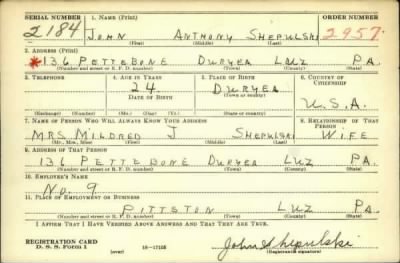 SERIAL NUMBER 1. NAME (Print) ORDER NUMBER
2184 JOHN ANTHONY SHEPULSKI 2957
(First) (Middle) (Last)
2. ADDRESS (Print)
*136 PETTEBONE DURYEA LUZ PA.
(Number and street or R. F. D. number) (Town) (County) (State)
3. TELEPHONE 4. AGE IN YEARS 5. PLACE OF BIRTH 6. COUNTRY OF CITIZENSHIP
24 DURYEA
DATE OF BIRTH (Town or county)
U.S.A.
(Exchange) (Number) (Mo.) (Day) (Yr.) (State or country)
7. NAME OF PERSON WHO WILL ALWAYS KNOW YOUR ADDRESS 8. RELATIONSHIP OF THAT PERSON
MRS MILDRED J SHEPULSKI WIFE
(Mr., Mrs., Miss) (First) (Middle) (Last)
9. ADDRESS OF THAT PERSON
136 PETTEBONE DURYEA LUZ PA.
(Number and street or R. F. D. number) (Town) (County) (State)
10. EMPLOYER'S NAME
NO. 9
11. PLACE OF EMPLOYMENT OR BUSINESS
PITTSTON LUZ PA.
(Number and street or R. F. D. number) (Town) (County) (State)
I AFFIRM THAT I HAVE VERIFIED ABOVE ANSWERS AND THAT THEY ARE TRUE.
REGISTRATION CARD
D. S. S. Form 1 (over) 16—17105 John A Shepulski
(Registrant's signature)